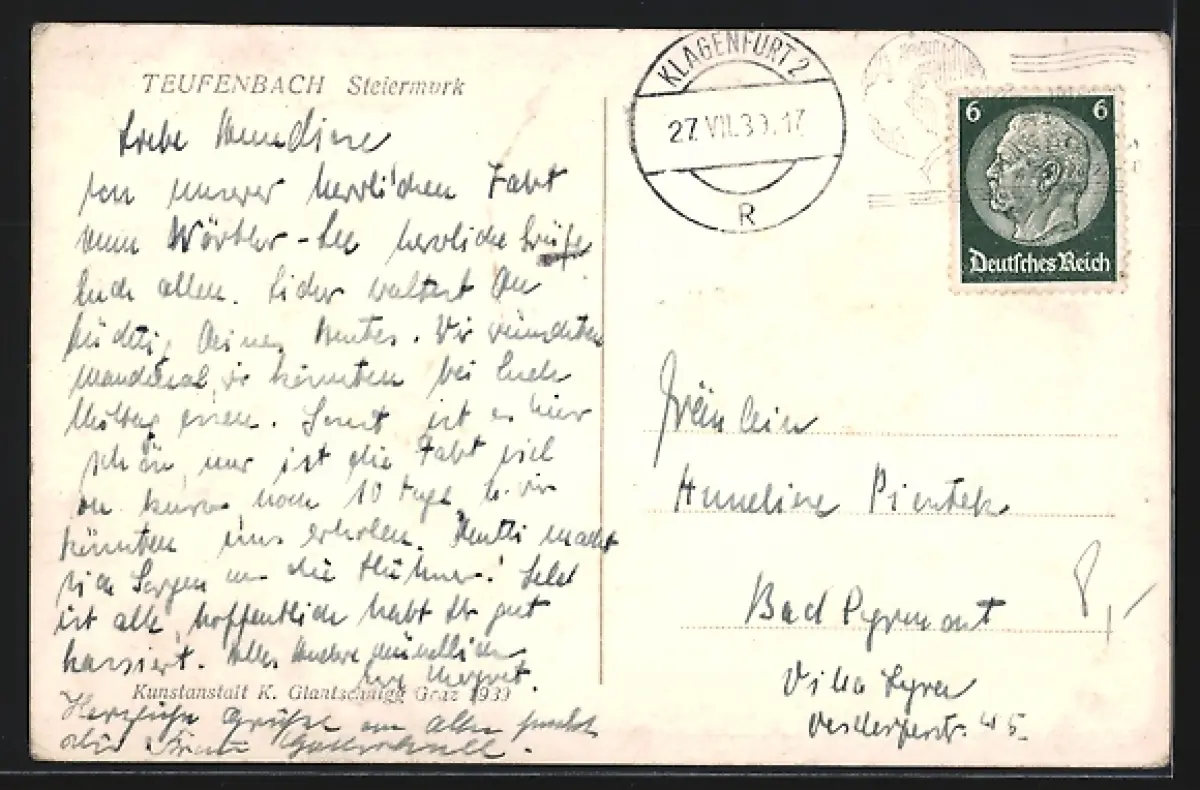 TEUFENBACH Steiermark
Liebe Anneliese
von unserer herrlichen Fahrt
Wörther-See herzliche Grüße
Euch allen. Leider
Deines Amtes. Wir wünschten
manchmal, wir könnten bei Euch
Mittag essen. Sonst ist es hier
schön, nur ist die Fahrt viel
zu kurz, noch 10 Tage, u. wir
könnten uns erholen. Mutti macht
sich Sorgen um die Hühner!
ist alle, hoffentlich habt Ihr gut
kassiert. Alles Andere mündlich
Kunstanstalt K. Glantschnigg Graz 1939
Herzliche Grüße an Alle
KLAGENFURT 2
27.VII.39.17
R
6 6
Deutsches Reich
Fräulein
Anneliese Pientek
Bad Pyrmont
Villa Lyra
45